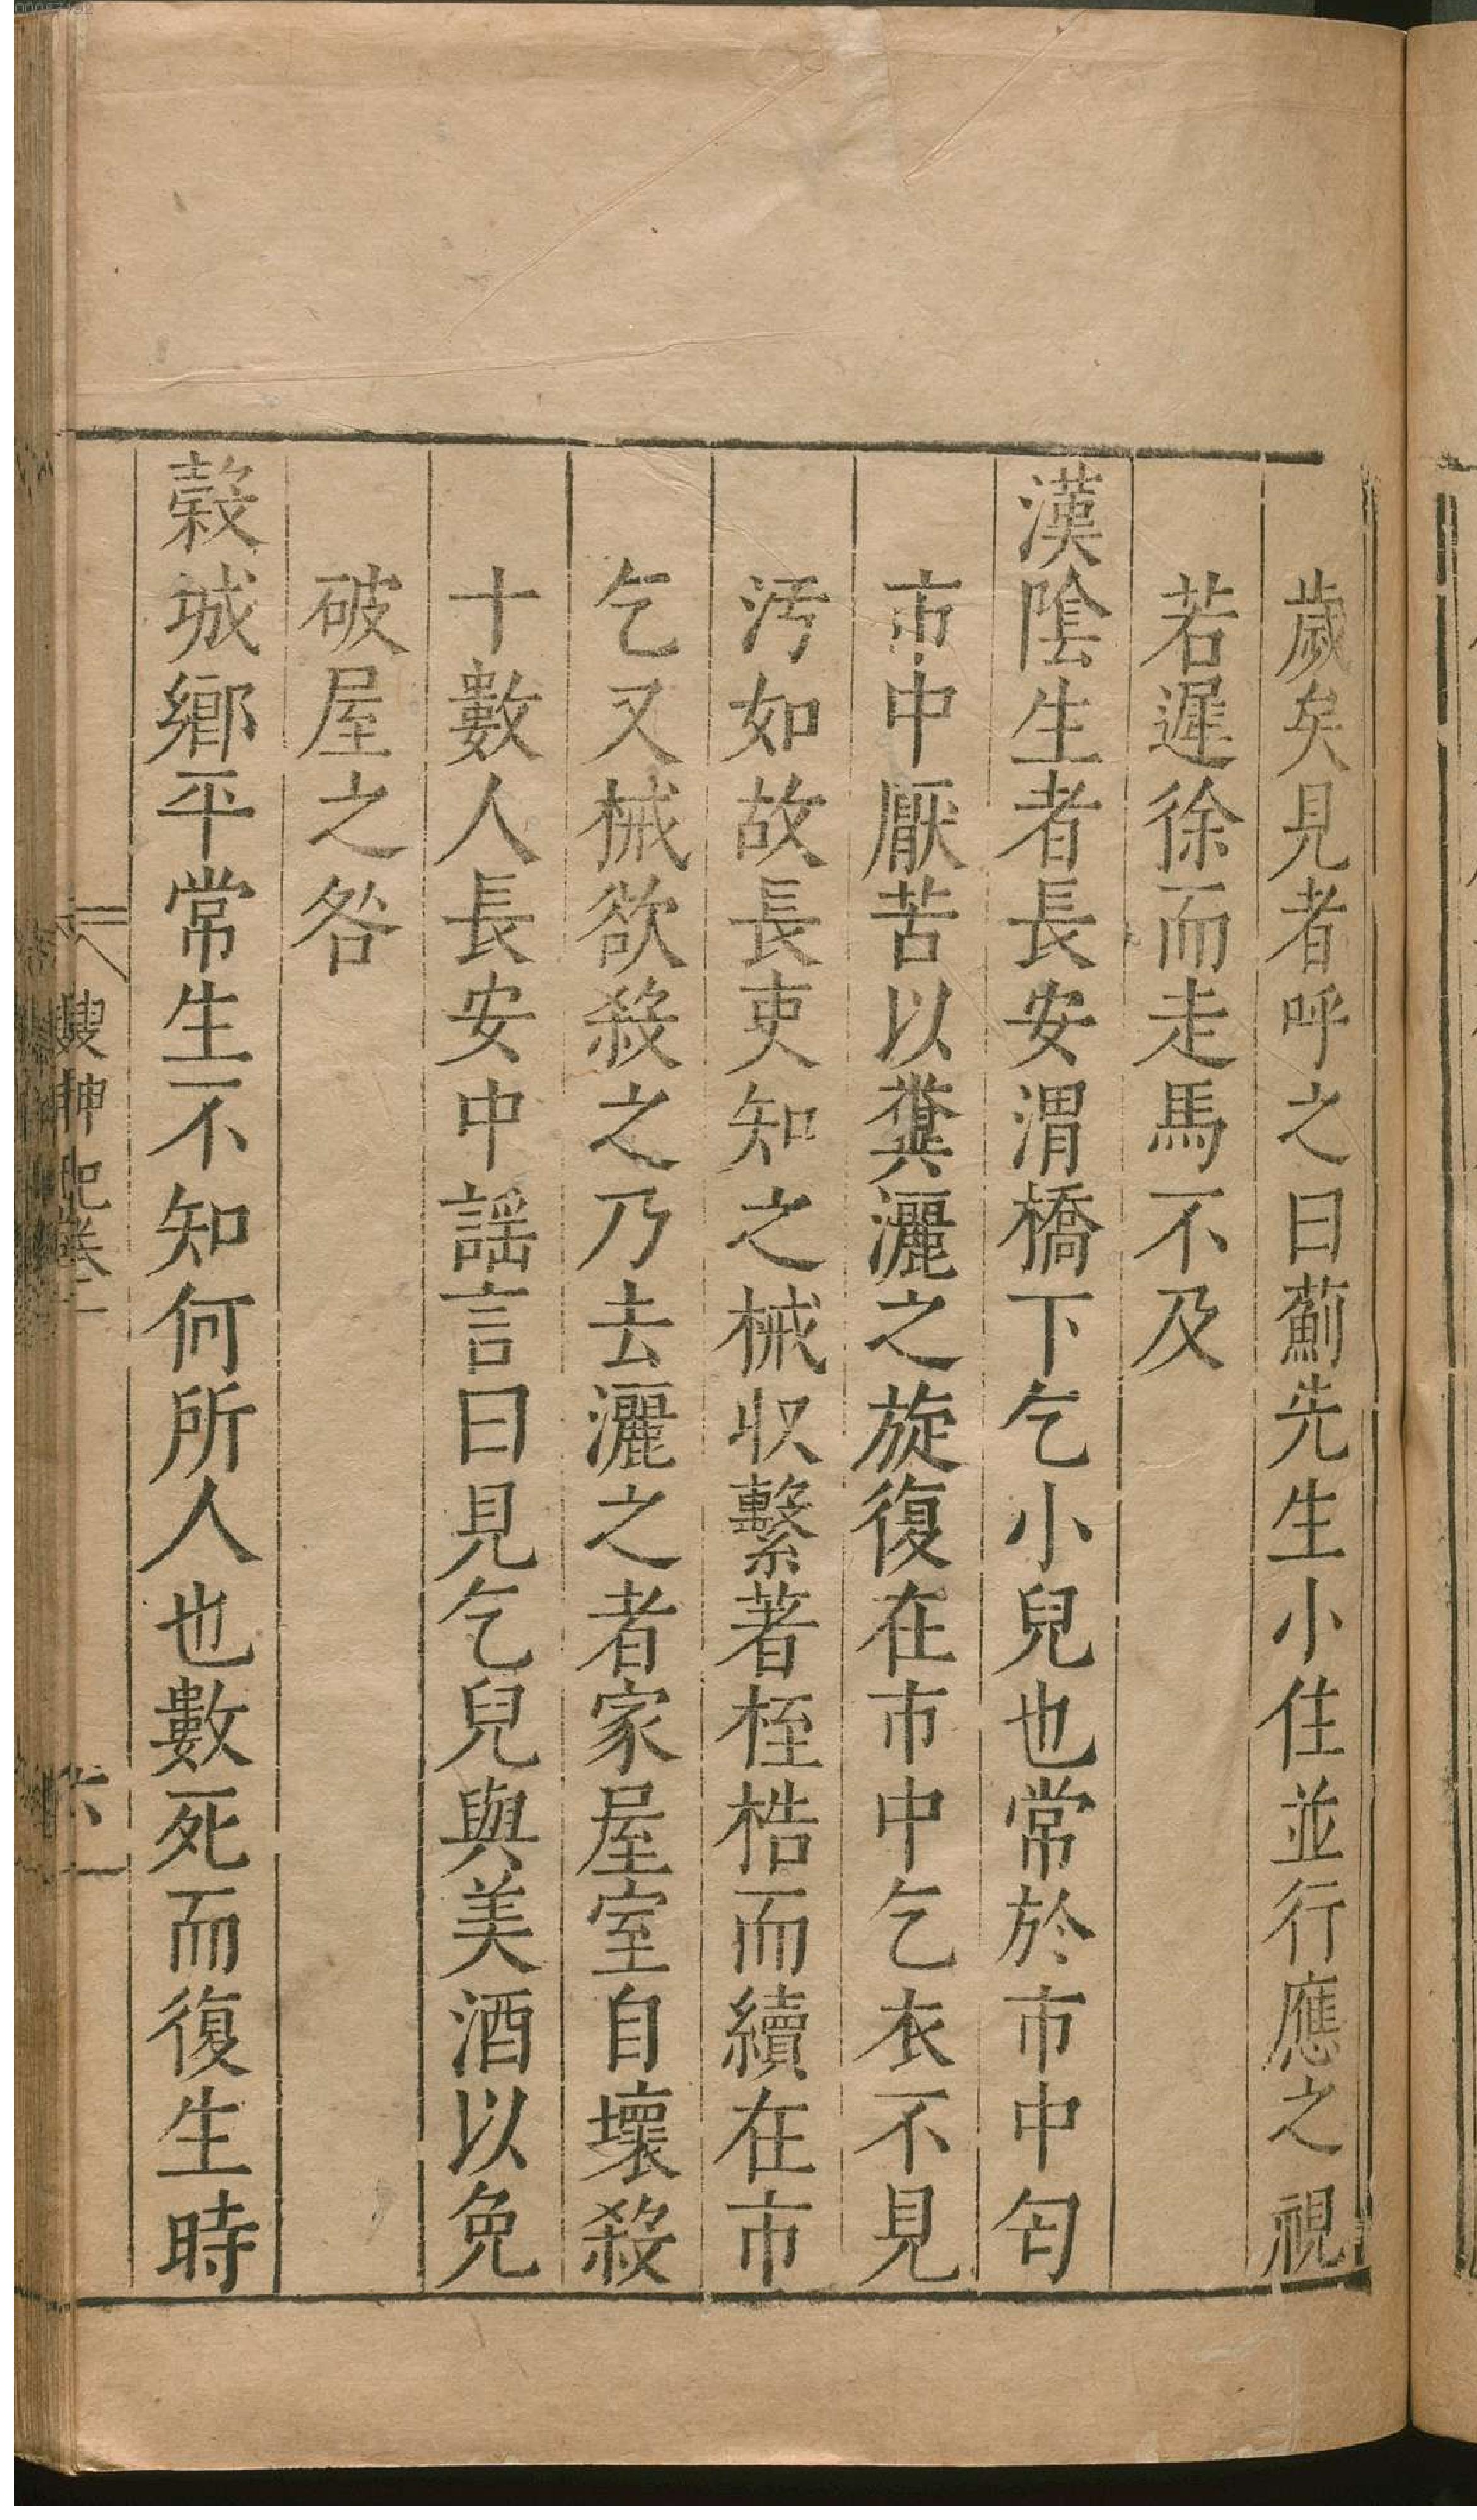 歲矣見者呼之曰薊先生小住並行應之視
若遲徐而走馬不及
漢陰生者長安渭橋下乞小兒也常於市中匄
市中厭苦以糞灑之旋復在市中乞衣不見
汚如故長吏知之械収繫著桎梏而續在市
乞又械欲殺之乃去灑之者家屋室自壞殺
十數人長安中謡言曰見乞兒與美酒以免
破屋之咎
穀城鄉平常生不知何所人也數死而復生時
搜神記卷一
六